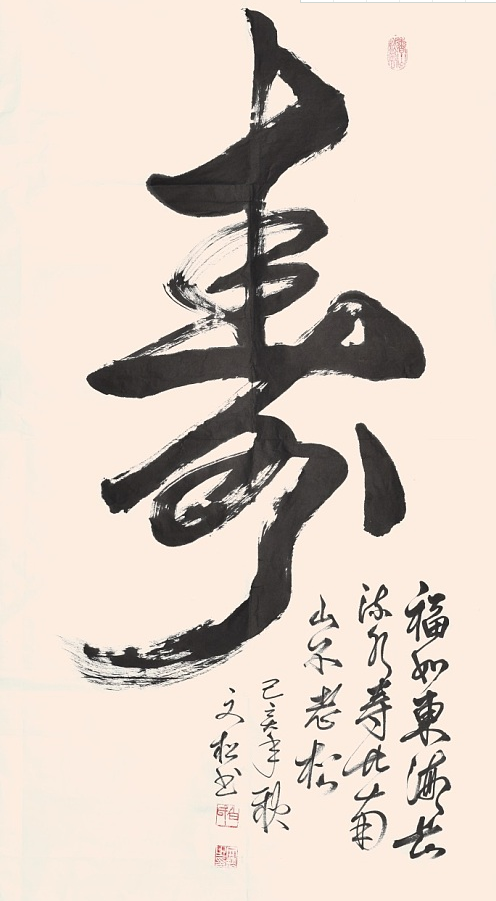 壽
福如東海長
流水壽比南
山不老松
己亥年秋
文松书